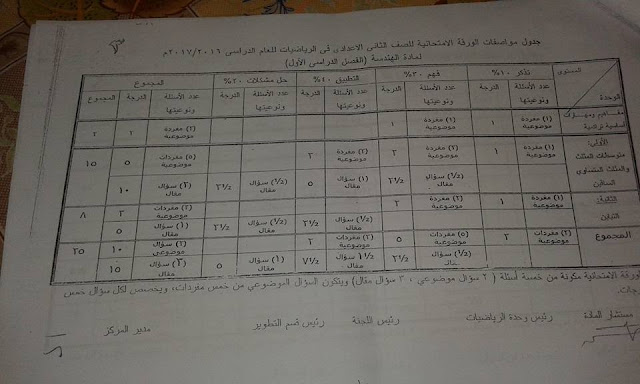 جدول مواصفات الورقة الامتحانية للصف الثانى الاعدادى فى الرياضيات للعام الدراسى ٢٠١٧/٢٠١٦م
لمادة الهندسة (الفصل الدراسى الأول)
المستوى تذكر ١٠% فهم ٣٠% التطبيق ٤٠% حل مشكلات ٢٠% المجموع
الوحدة عدد الأسئلة ونوعيتها الدرجة عدد الأسئلة ونوعيتها الدرجة عدد الأسئلة ونوعيتها الدرجة عدد الأسئلة ونوعيتها الدرجة عدد الأسئلة ونوعيتها الدرجة المجموع
مفاهيم ومهارات أساسية تراكمية (١) مفردة موضوعية ١ (١) مفردة موضوعية ١ (٢) مفردة موضوعية ٢ ٢
الأولى: متوسطات المثلث والمثلث المتساوى الساقين (١) مفردة موضوعية ١ (٢) مفردة موضوعية ٢ (٢) مفردة موضوعية ٢ (٥) مفردات موضوعية ٥ ١٥
(½) سؤال مقال ٢½ (١) سؤال مقال ٥ (½) سؤال مقال ٢½ (٢) سؤال مقال ١٠
الثانية: التباين (١) مفردة موضوعية ١ (٢) مفردة موضوعية ٢ (٣) مفردات موضوعية ٣ ٨
(½) سؤال مقال ٢½ (½) سؤال مقال ٢½ (١) سؤال مقال ٥
المجموع (٣) مفردات موضوعية (٥) مفردات موضوعية ٥ (٢) مفردات موضوعية ٢ (٢) سؤال موضوعى ١٠ ٢٥
(½) سؤال مقال ٢½ ١½ سؤال مقال ٧½ (١) سؤال مقال ٥ (٣) سؤال مقال ١٥
الورقة الامتحانية مكونة من خمسة أسئلة ( ٢ سؤال موضوعي ، ٣ سؤال مقال) ويتكون السؤال الموضوعي من خمس مفردات، ويخصص لكل سؤال خمس
مستشار المادة رئيس وحدة الرياضيات رئيس اللجنة رئيس قسم التطوير مدير المركز